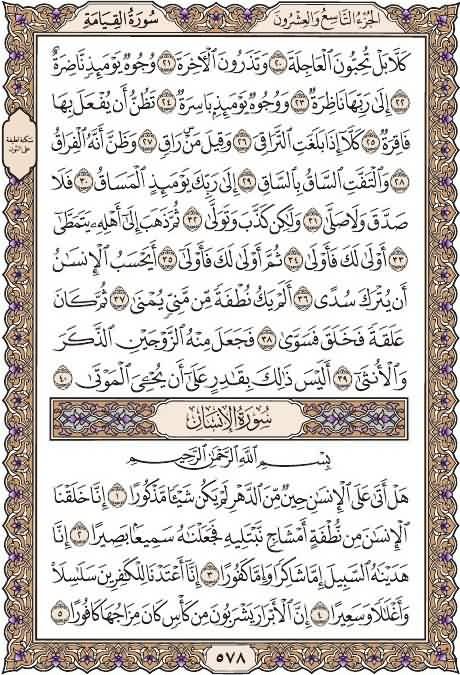 الجُزءُ التَّاسِعُ وَالعِشرُونَ
سُورَةُ القِيَامَةِ
كَلَّا بَلْ تُحِبُّونَ ٱلْعَاجِلَةَ ٢٠ وَتَذَرُونَ ٱلْأٓخِرَةَ ٢١ وُجُوهٌ يَوْمَئِذٍ نَّاضِرَةٌ
٢٢ إِلَىٰ رَبِّهَا نَاظِرَةٌ ٢٣ وَوُجُوهٌ يَوْمَئِذٍۭ بَاسِرَةٌ ٢٤ تَظُنُّ أَن يُفْعَلَ بِهَا
فَاقِرَةٌ ٢٥ كَلَّآ إِذَا بَلَغَتِ ٱلتَّرَاقِيَ ٢٦ وَقِيلَ مَنْۜ رَاقٍ ٢٧ وَظَنَّ أَنَّهُ ٱلْفِرَاقُ
٢٨ وَٱلْتَفَّتِ ٱلسَّاقُ بِٱلسَّاقِ ٢٩ إِلَىٰ رَبِّكَ يَوْمَئِذٍ ٱلْمَسَاقُ ٣٠ فَلَا
صَدَّقَ وَلَا صَلَّىٰ ٣١ وَلَٰكِن كَذَّبَ وَتَوَلَّىٰ ٣٢ ثُمَّ ذَهَبَ إِلَىٰٓ أَهْلِهِۦ يَتَمَطَّىٰٓ
٣٣ أَوْلَىٰ لَكَ فَأَوْلَىٰ ٣٤ ثُمَّ أَوْلَىٰ لَكَ فَأَوْلَىٰٓ ٣٥ أَيَحْسَبُ ٱلْإِنسَٰنُ
أَن يُتْرَكَ سُدًى ٣٦ أَلَمْ يَكُ نُطْفَةً مِّن مَّنِىٍّ يُمْنَىٰ ٣٧ ثُمَّ كَانَ
عَلَقَةً فَخَلَقَ فَسَوَّىٰ ٣٨ فَجَعَلَ مِنْهُ ٱلزَّوْجَيْنِ ٱلذَّكَرَ
وَٱلْأُنثَىٰٓ ٣٩ أَلَيْسَ ذَٰلِكَ بِقَٰدِرٍ عَلَىٰٓ أَن يُحْـِۧىَ ٱلْمَوْتَىٰ ٤٠
سُورَةُ الإِنسَانِ
بِسْمِ ٱللَّهِ ٱلرَّحْمَٰنِ ٱلرَّحِيمِ
هَلْ أَتَىٰ عَلَى ٱلْإِنسَٰنِ حِينٌ مِّنَ ٱلدَّهْرِ لَمْ يَكُن شَيْـًٔا مَّذْكُورًا ١ إِنَّا خَلَقْنَا
ٱلْإِنسَٰنَ مِن نُّطْفَةٍ أَمْشَاجٍ نَّبْتَلِيهِ فَجَعَلْنَٰهُ سَمِيعًۢا بَصِيرًا ٢ إِنَّا
هَدَيْنَٰهُ ٱلسَّبِيلَ إِمَّا شَاكِرًا وَإِمَّا كَفُورًا ٣ إِنَّآ أَعْتَدْنَا لِلْكَٰفِرِينَ سَلَٰسِلَا۟
وَأَغْلَٰلًا وَسَعِيرًا ٤ إِنَّ ٱلْأَبْرَارَ يَشْرَبُونَ مِن كَأْسٍ كَانَ مِزَاجُهَا كَافُورًا ٥
سكتة لطيفة
على النون
٥٧٨